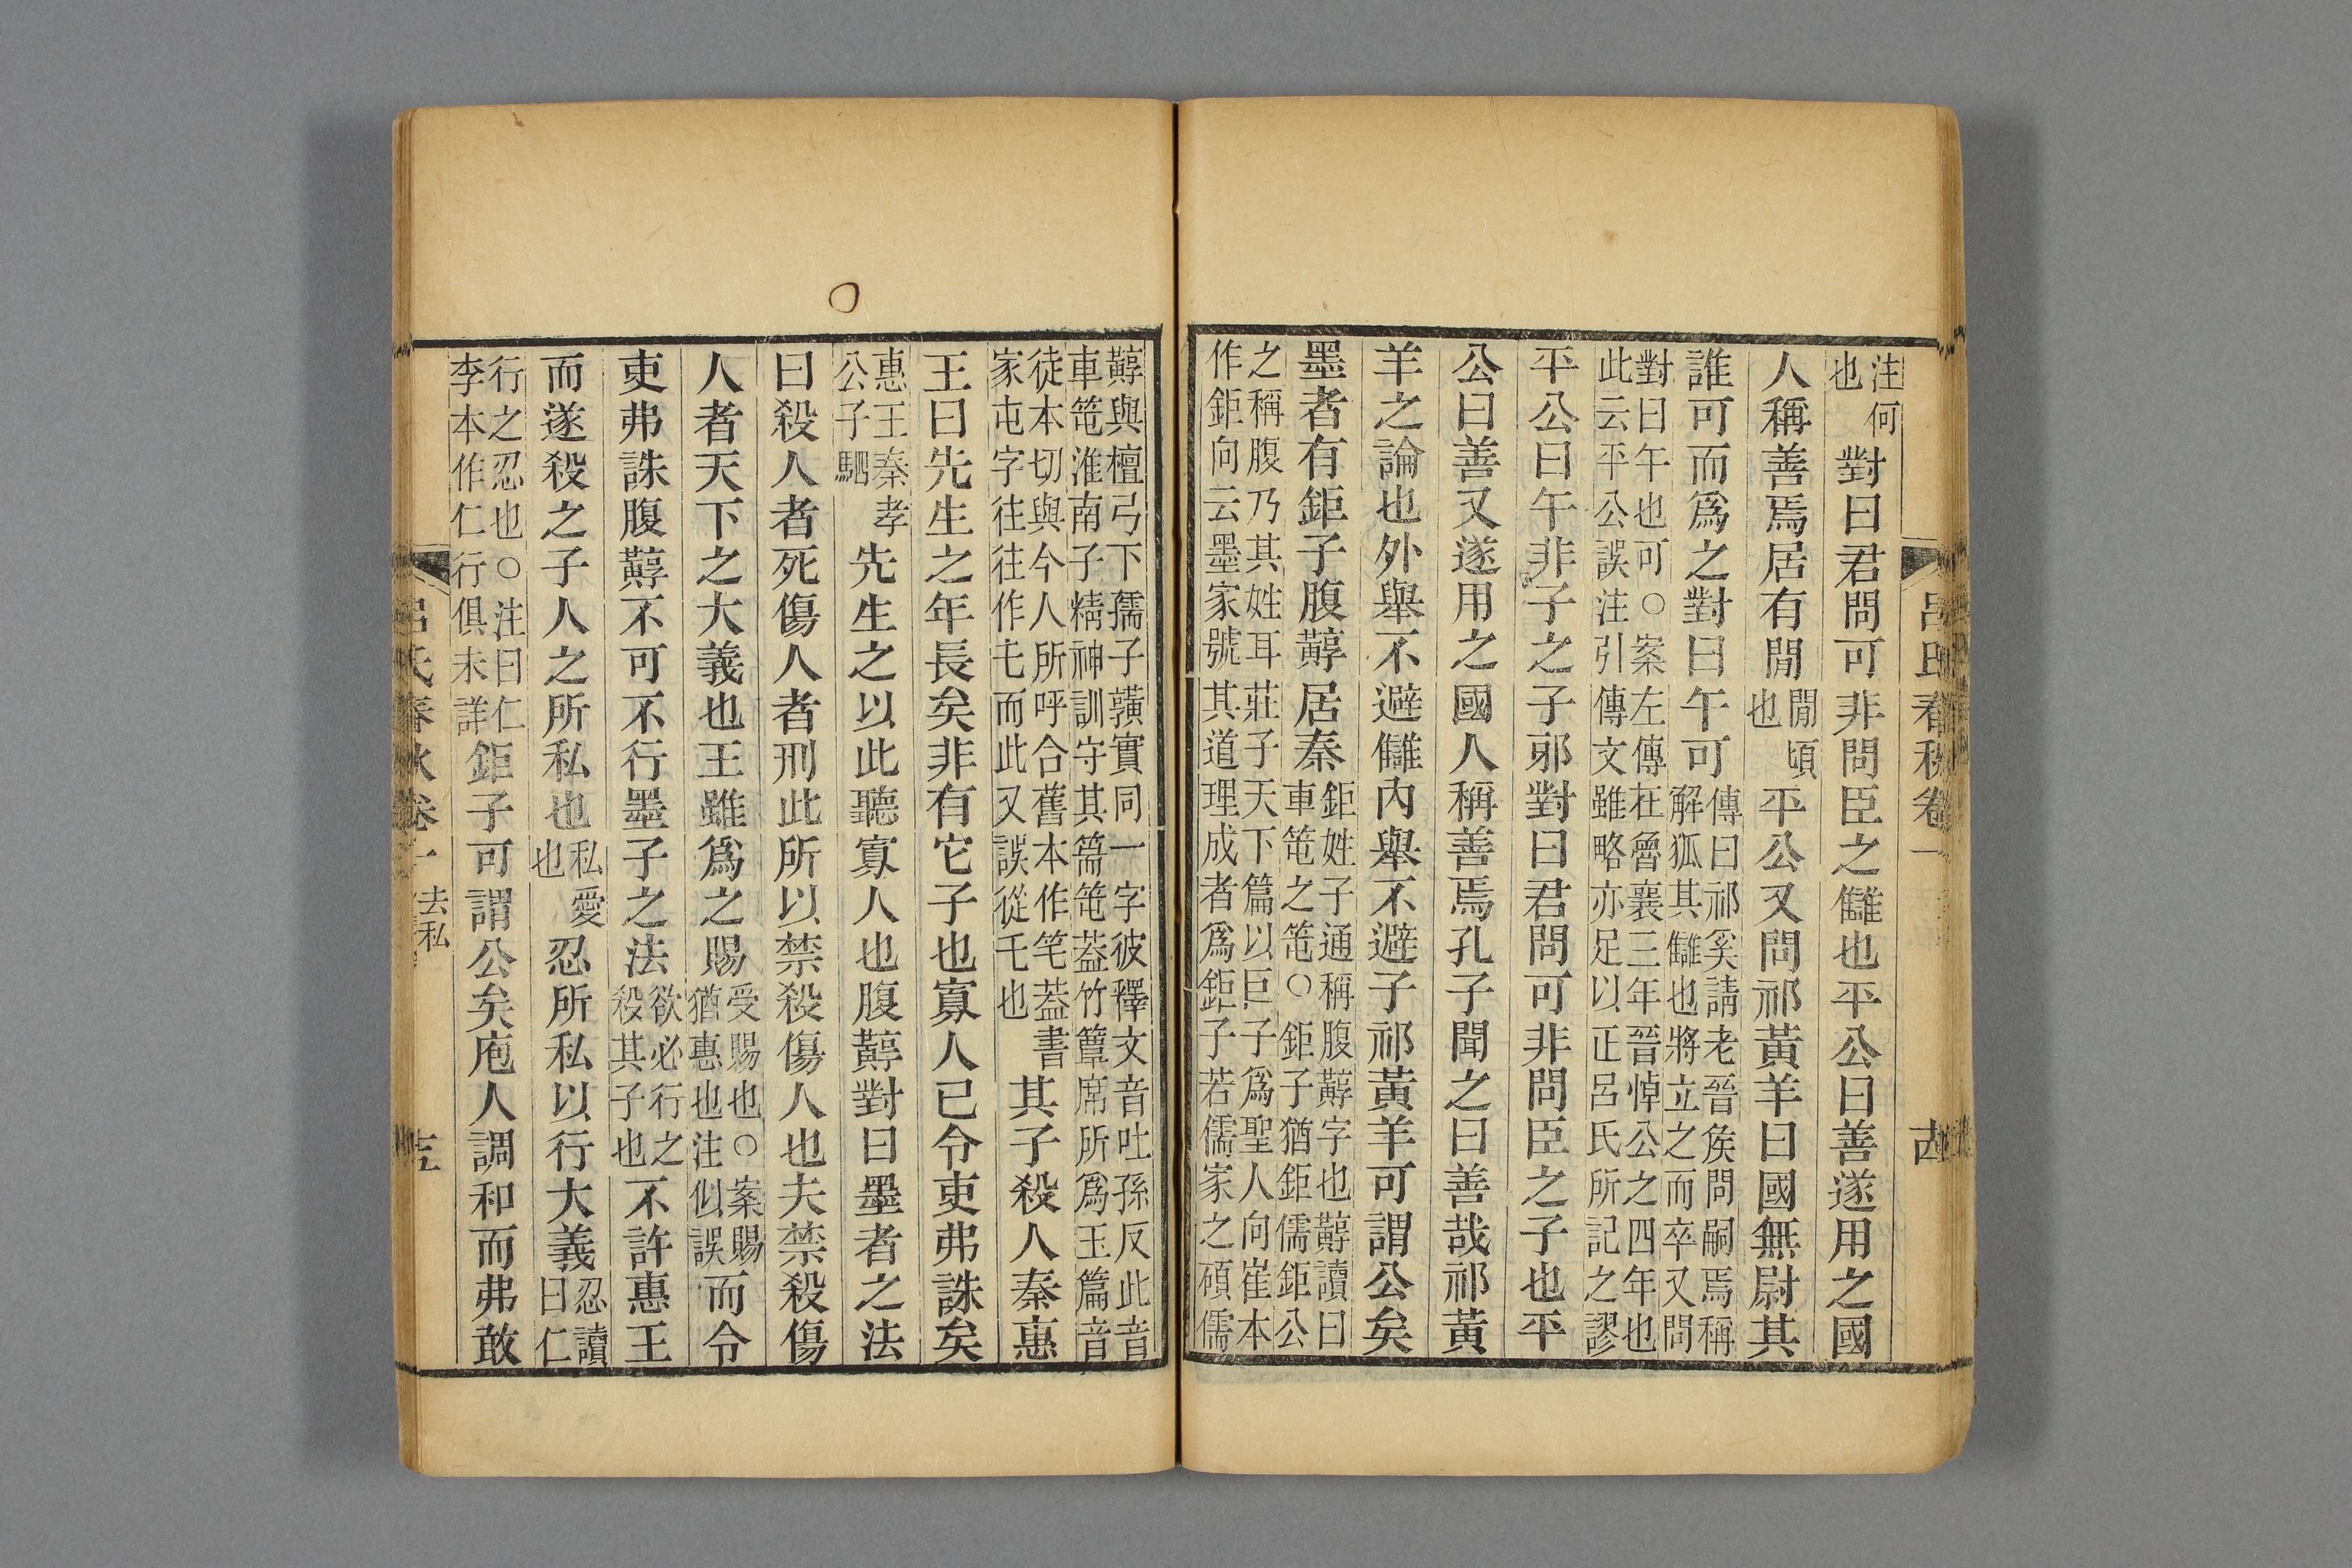 呂氏春秋卷一
注何也對曰君問可非問臣之讎也平公曰善遂用之國
人稱善焉居有閒閒頃也平公又問祁黃羊曰國無尉其
誰可而爲之對曰午可傳曰祁奚請老晉矦問嗣焉稱解狐其讎也將立之而卒又問
對曰午也可○案左傳在魯襄三年晉悼公之四年也此云平公誤注引傳文雖略亦足以正呂氏所記之謬
平公曰午非子之子邪對曰君問可非問臣之子也平
公曰善又遂用之國人稱善焉孔子聞之曰善哉祁黃
羊之論也外舉不避讎內舉不避子祁黃羊可謂公矣
墨者有鉅子腹䵍居秦鉅姓子通稱腹䵍字也䵍讀曰車𥫱之𥫱○鉅子猶鉅儒鉅公
之稱腹乃其姓耳莊子天下篇以巨子爲聖人向崔本作鉅向云墨家號其道理成者爲鉅子若儒家之碩儒
䵍與檀弓下孺子䵍實同一字彼釋文音吐孫反此音車𥫱淮南子精神訓守其篅𥫱葢竹簟席所爲玉篇音
徒本切與今人所呼合舊本作笔葢書家屯字往往作乇而此又誤從毛也其子殺人秦惠
王曰先生之年長矣非有它子也寡人已令吏弗誅矣
惠王秦孝公子駟先生之以此聽寡人也腹䵍對曰墨者之法
曰殺人者死傷人者刑此所以禁殺傷人也夫禁殺傷
人者天下之大義也王雖爲之賜受賜也○案賜猶惠也注似誤而令
吏弗誅腹䵍不可不行墨子之法欲必行之殺其子也不許惠王
而遂殺之子人之所私也私愛也忍所私以行大義忍讀曰仁
行之忍也○注曰仁李本作仁行俱未詳鉅子可謂公矣庖人調和而弗敢
呂氏春秋卷一 去私